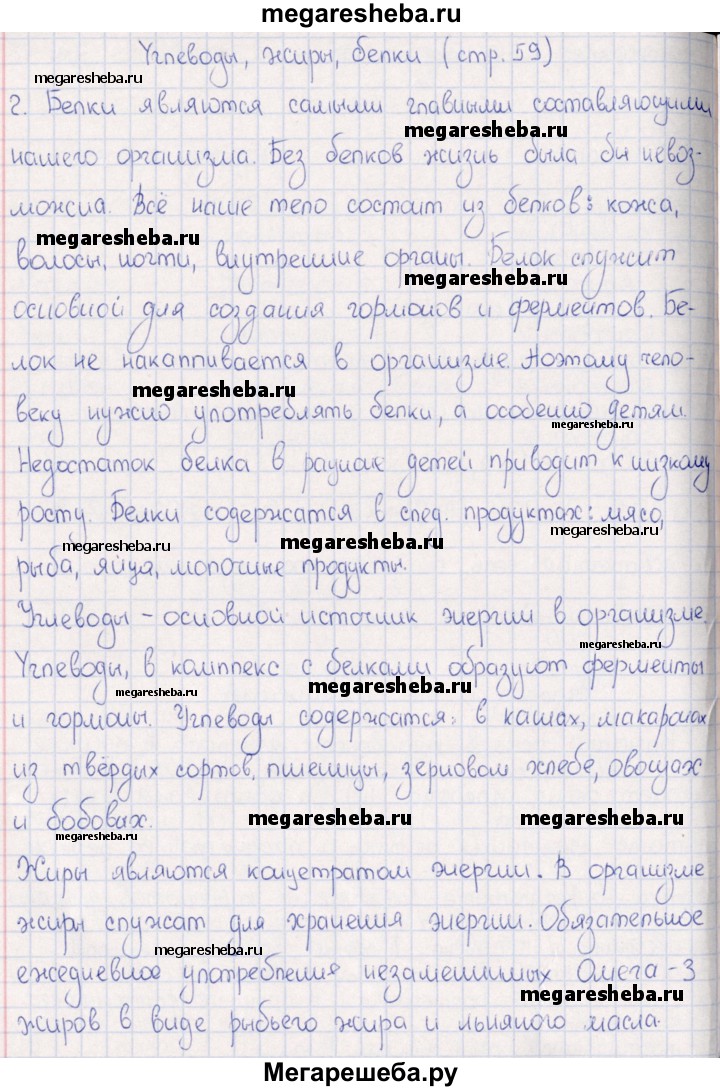 megaresheba.ru
Углеводы, жиры, белки (стр. 59)
megaresheba.ru
2. Белки являются самыми главными составляющими
megaresheba.ru
нашего организма. Без белков жизнь была бы невоз-
можна. Всё наше тело состоит из белков: кожа,
megaresheba.ru
волосы, ногти, внутренние органы. Белок служит
megaresheba.ru
основной для создания гормонов и ферментов. Бе-
лок не накапливается в организме. Поэтому чело-
megaresheba.ru
веку нужно употреблять белки, а особенно детям.
megaresheba.ru
Недостаток белка в рационе детей приводит к низкому
росту. Белки содержатся в след. продуктах: мясо,
megaresheba.ru
megaresheba.ru
megaresheba.ru
рыба, яйца, молочные продукты.
Углеводы - основной источник энергии в организме.
megaresheba.ru
Углеводы, в комплекс с белками образуют ферменты
megaresheba.ru
megaresheba.ru
и гормоны. Углеводы содержатся: в кашах, макаронах
из твёрдых сортов, пшеницы, зерновом хлебе, овощах
и бобовых.
megaresheba.ru
megaresheba.ru
megaresheba.ru
Жиры являются концетратом энергии. В организме
жиры служат для хранения энергии. Обязательное
megaresheba.ru
ежедневное употребления незаменимых Омега-3
megaresheba.ru
жиров в виде рыбьего жира и льняного масла.
Мегарешеба.ру